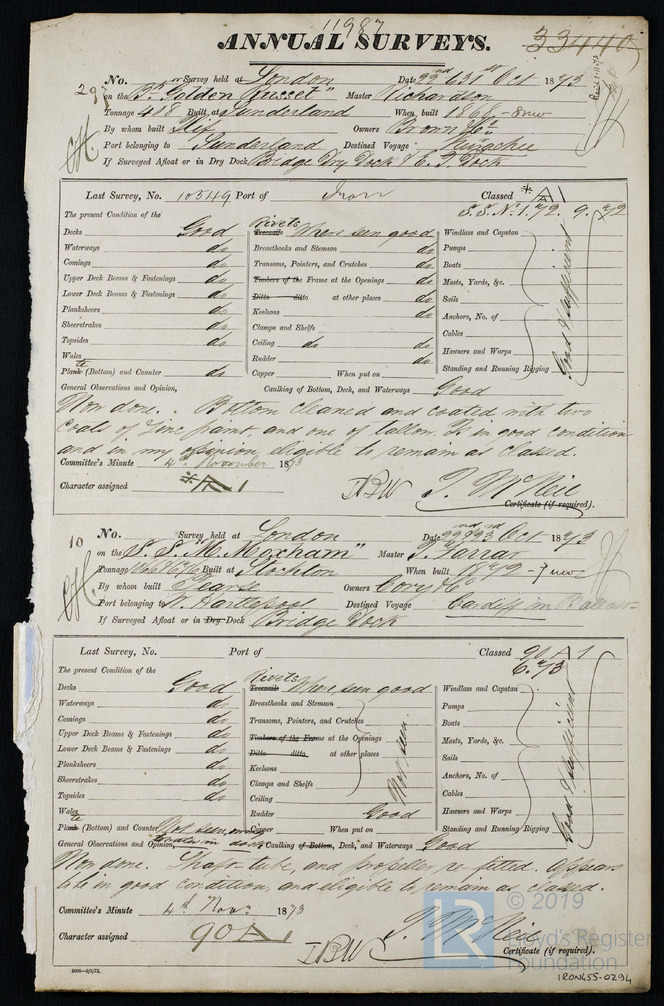 11987
ANNUAL SURVEYS.
33440
No. or Survey held at London Date 23rd & 31st Oct 1873
297 on the Bk "Golden Russet" Master Richardson
Tonnage 488 Built at Sunderland When built 1868 - 8mo
By whom built Iliff Owners Brown & Co
Port belonging to Sunderland Destined Voyage
If Surveyed Afloat or in Dry Dock Bridge Dry Dock & E. I. Dock
Last Survey, No. 10549 Port of Iron Classed A 1
S.S. No. 1. 72. 9. 72
The present Condition of the
Decks Good
Waterways do
Comings do
Upper Deck Beams & Fastenings do
Lower Deck Beams & Fastenings do
Planksheers do
Sheerstrakes do
Topsides do
Wales
Plate (Bottom) and Counter do
Rivets
Treenails Where seen good
Breasthooks and Stemson do
Transoms, Pointers, and Crutches do
Timbers of the Frame at the Openings do
Ditto ditto at other places do
Keelsons do
Clamps and Shelfs
Ceiling do do
Rudder do
Copper When put on
Windlass and Capstan
Pumps
Boats
Masts, Yards, &c.
Sails
Anchors, No. of
Cables
Hawsers and Warps
Standing and Running Rigging
Good & Sufficient
General Observations and Opinion, Caulking of Bottom, Deck, and Waterways Good
Now done. Bottom cleaned and coated with two
coats of zinc paint, and one of tallow. Is in good condition
and in my opinion eligible to remain as classed.
Committee's Minute 4th November 1873
Character assigned A 1
J. McNeil
Certificate (if required).
10 No. Survey held at London Date 22nd & 23rd Oct 1873
on the S.S. "M. Moxham" Master J. Farrar
Tonnage Built at Stockton When built 1872 - 7mo
By whom built Pearse Owners Cory & Co
Port belonging to W. Hartlepool Destined Voyage Cardiff in Ballast
If Surveyed Afloat or in Dry Dock Bridge Dock
Last Survey, No. Port of Classed 90 A 1
6. 73
The present Condition of the
Decks Good
Waterways do
Comings do
Upper Deck Beams & Fastenings do
Lower Deck Beams & Fastenings do
Planksheers do
Sheerstrakes do
Topsides do
Wales
Plate (Bottom) and Counter Not seen, own
water in dock
Rivets
Treenails Where seen good
Breasthooks and Stemson
Transoms, Pointers, and Crutches
Timbers of the Frame at the Openings
Ditto ditto at other places
Keelsons
Clamps and Shelfs
Ceiling
Not seen.
Rudder Good
Copper When put on
Windlass and Capstan
Pumps
Boats
Masts, Yards, &c.
Sails
Anchors, No. of
Cables
Hawsers and Warps
Standing and Running Rigging
Good & Sufficient
General Observations and Opinion, Caulking of Bottom, Deck, and Waterways Good
Now done. Shaft tube, and propeller re-fitted. Appears
to be in good condition, and eligible to remain as classed.
Committee's Minute 4th Novr 1873
Character assigned 90 A 1
J. McNeil
Certificate (if required).
2000-8/2/72.
LR © 2019
Lloyd's Register
Foundation
IRON455-0294